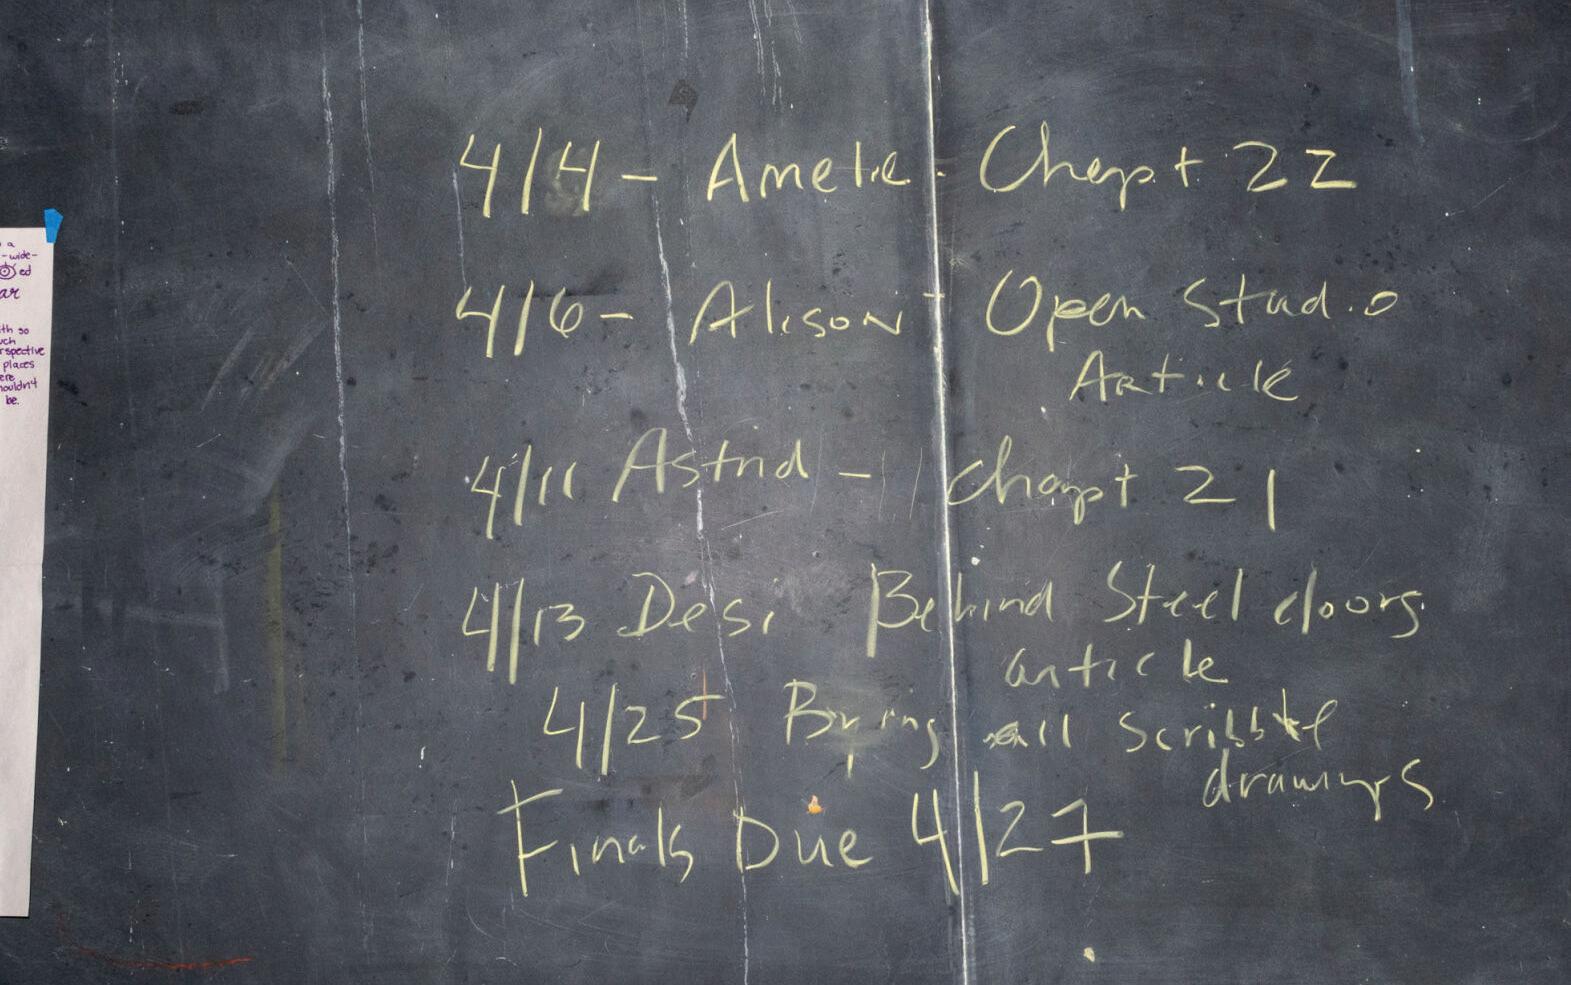 a
-wide-
ed
ar
th so
uch
rspective
places
ere
houldn't
be.
4/4 - Amelie - Chapt 22
4/6 - Alison - Open Studio
Article
4/11 Astrid - chapt 21
4/13 Desi Behind Steel doors
article
4/25 Bring all scribble
drawings
Finals Due 4/27